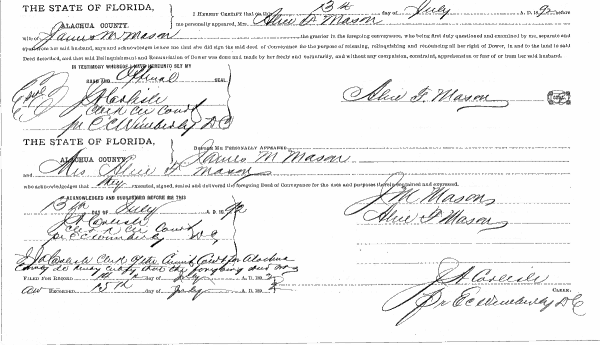 THE STATE OF FLORIDA,
ALACHUA COUNTY.
I HEREBY CERTIFY that on this 13th day of July A. D. 1892 before
me personally appeared, Mrs. Alice F. Mason
wife of James M Mason the grantor in the foregoing conveyance, who being first duly questioned and examined by me, separate and
apart from her said husband, says and acknowledges before me that she did sign the said deed of Conveyance for the purpose of releasing, relinquishing and renouncing all her right of Dower, in and to the land in said
Deed described, and that said Relinquishment and Renunciation of Dower was done and made by her freely and voluntarily, and without any compulsion, constraint, apprehension or fear of or from her said husband.
IN TESTIMONY WHEREOF I HAVE HEREUNTO SET MY
HAND AND Official SEAL
Seal
J A Carlisle
Clerk Cir Court
pr E C Wimberly D C
Alice F. Mason
THE STATE OF FLORIDA,
ALACHUA COUNTY.
BEFORE ME PERSONALLY APPEARED James M Mason
and Mrs Alice F Mason
who acknowledges that they executed, signed, sealed and delivered the foregoing Deed of Conveyance for the uses and purposes therein contained and expressed.
ACKNOWLEDGED AND SUBSCRIBED BEFORE ME THIS
13th DAY OF July A. D. 1892
J A Carlisle
Clerk Cir Court
pr E C Wimberly D C
J. M Mason
Alice F. Mason
I J A Carlisle Clerk of the Circuit Court for Alachua
County do hereby certify that the foregoing deed was
FILED FOR RECORD day of July A. D. 189
and RECORDED 15th day of July A. D. 189
J A Carlisle CLERK.
pr E C Wimberly D C